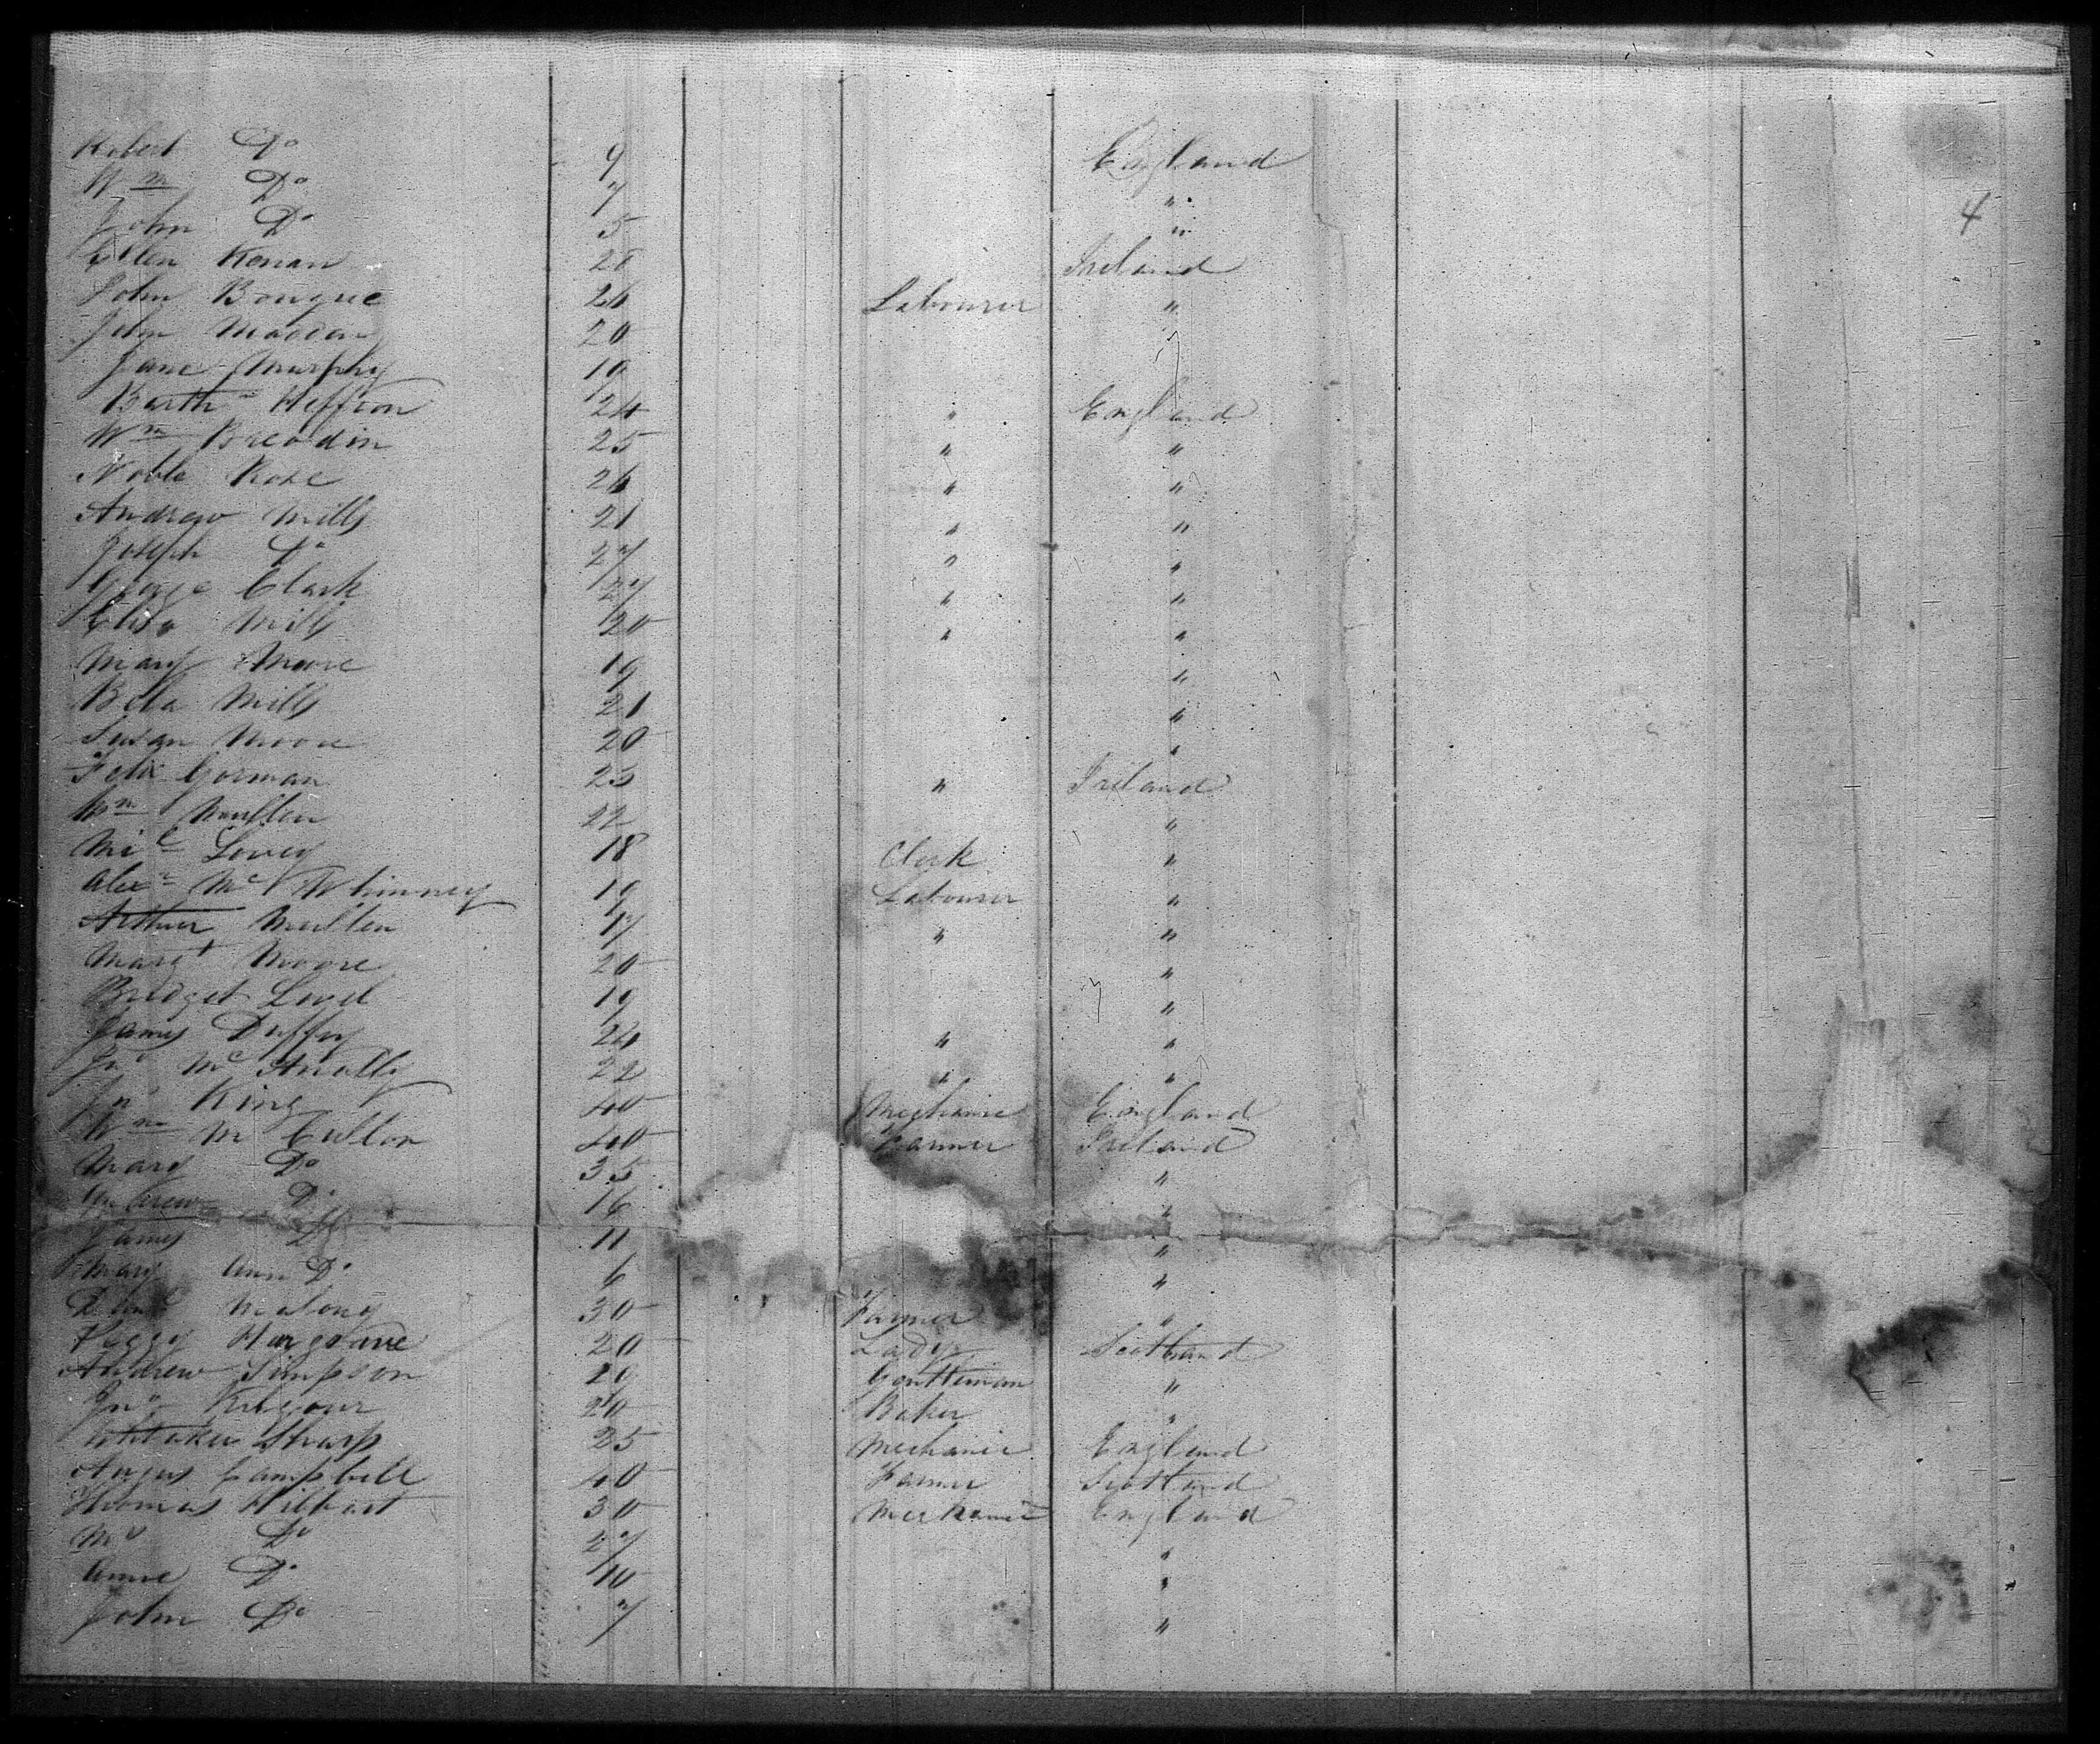 Robert Do 9 England
Wm Do 7 "
John Do 5 "
Ellen Kenan 28 Ireland
John Bougue 26 Labourer "
John Madden 20
Jane Murphy 19
Barthw Heffron 24 " England
Wm Breadin 25 " "
Noble Rose 26 " "
Andrew Mills 21 " "
Joseph Do 27 " "
George Clark 27 " "
Eliza Mills 20 " "
Mary Moore 19 "
Bela Mills 21 "
Susan Moore 20 "
Felix Gorman 23 " Ireland
Wm 22 "
Micl Lowey 18 Clerk "
Alexr McWhinney 19 Labourer "
Arthur Mullen 17 " "
Margt Moore 20 "
Bridget Lovel 19 "
James Duffy 24 " "
Jno McAnally 22 " "
Jno King 40 Mechanic England
Wm McCullon 40 Farmer Ireland
Mary Do 35 "
Andrew Do 16 "
James Do 11 "
Mary Ann Do 6 "
Danl Malony 30 Farmer "
Peggy Hargrave 20 Lady Scotland
Andrew Simpson 29 Gentleman "
Jno Kilgour 20 Baker "
Whitaker Sharp 25 Mechanic England
Angus Campbell 40 Farmer Scotland
Thomas Hilbert 30 Mechanic England
Mrs Do 27 "
Anne Do 10 "
John Do 7 "
4